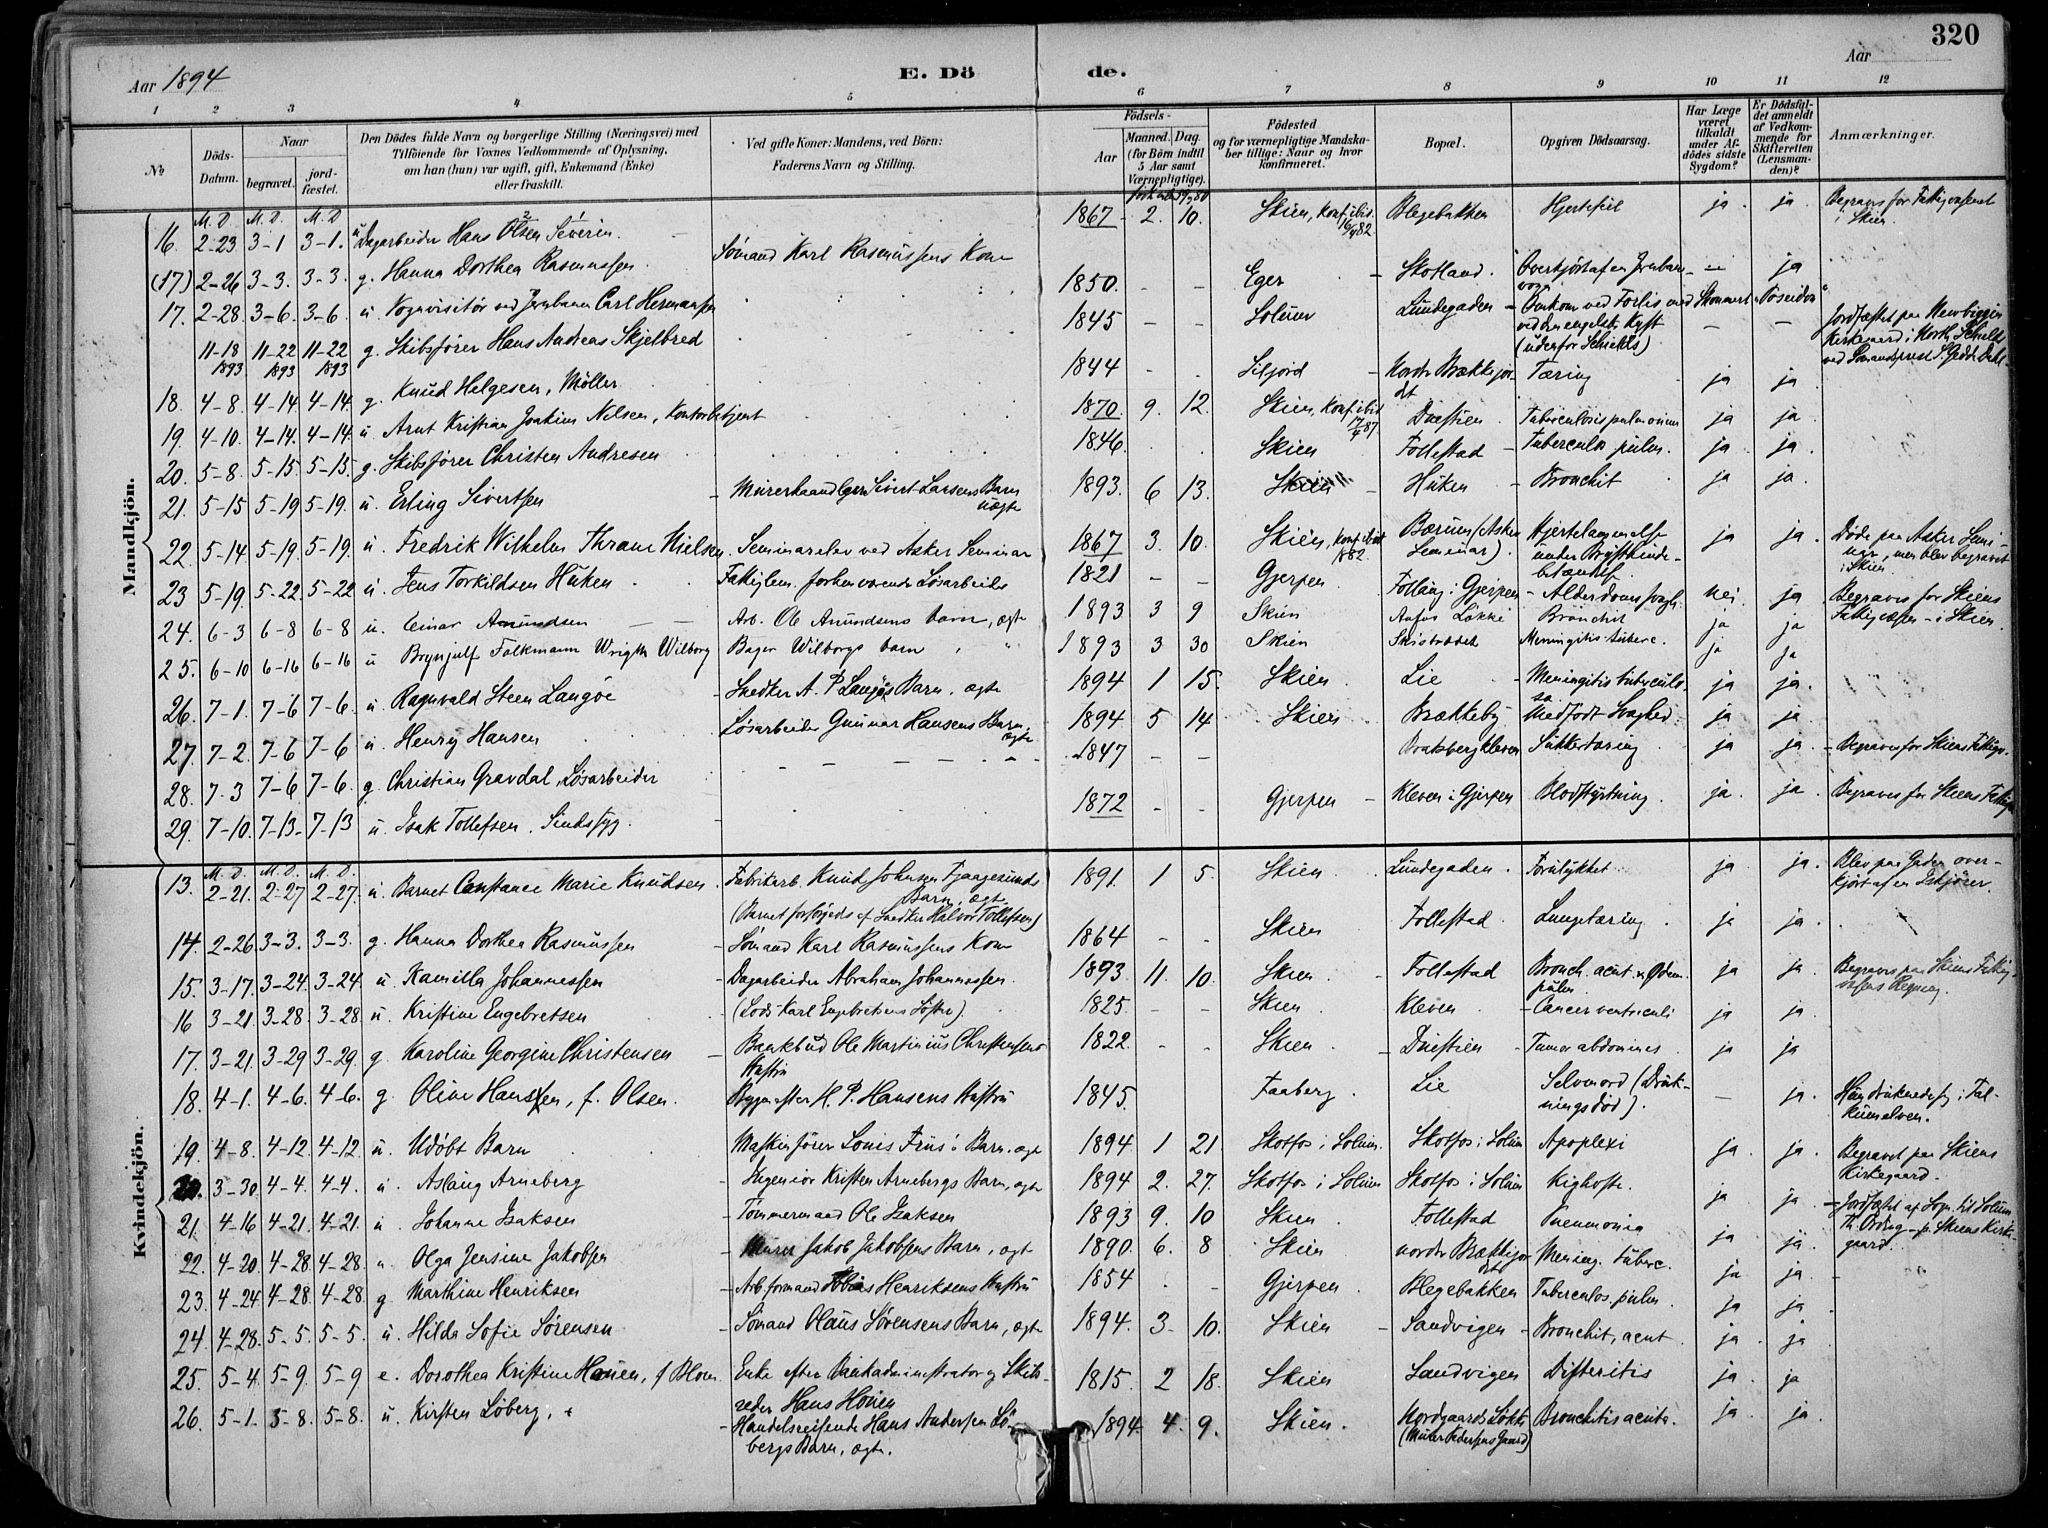 320
Aar 1894
E. Dö
de.
Aar
1 2 3 4 5 6 7 8 9 10 11 12
No
Döds-Datum.
Naar
begravet.
jord-fæstet.
Den Dödes fulde Navn og borgerlige Stilling (Næringsvei) med
Tilföiende for Voxnes Vedkommende af Oplysning,
om han (hun) var ugift, gift, Enkemand (Enke)
eller fraskilt.
Ved gifte Koner: Mandens, ved Börn:
Faderens Navn og Stilling.
Födsels-
Aar
Maaned. Dag.
(for Börn indtil
5 Aar samt
Værnepligtige).
Födested
og for værnepligtige Mandska-
ber tillige: Naar og hvor
konfirmeret.
Bopæl.
Opgiven Dödsaarsag.
Har Læge
været
tilkaldt
under Af-
dödes sidste
Sygdom?
Er Dödsfal-
det anmeldt
af Vedkom-
mende for
Skifteretten
(Lensman-
den)?
Anmærkninger.
Mandkjön.
M. D. M. D. M. D.
16. 2-23 3-1 3-1. u Dagarbeider Hans Olsen Severin. 1867 2. 10. Skien, Konf. ibid. 82. Blegebakken Hjertefeil ja ja. Begraves for Fattigvæsenet i Skien
(17) 2-26 3-3. 3-3. g. Hanna Dorthea Rasmussen. Sömand Karl Rasmussens Kone
17. 2-28. 3-6. 3-6. u Vognvisitör ved Jernbanen Carl Hermansen 1850. - - Eger Skotland. Overkjört af en Jernbane-vogn ja
11-18 1893 11-22 1893 11-22 1893 g. Skibsförer Hans Andreas Skjelbred 1845 - - Solum Lundegaden Omkom ved Forlis med Skonnert "Poseidon" ved den engelske Kyst (udenfor Schields) - - Jordfæstet paa Newbiggin Kirkegaard i North Schields ved Sömandsprest
18. 4-8. 4-14. 4-14. g. Knud Helgesen, Möller 1844 - - Siljord Nordre Brækkejordet Tæring ja ja
19. 4-10. 4-14. 4-14. u Arnt Kristian Joakim Nilsen, Kontorbetjent 1870. 9. 12. Skien, Konf. ibid 87 Duestien Tuberculosis pulmonum ja ja.
20. 5-8. 5-15. 5-15. g. Skibsförer Christen Andresen 1846. Skien Follestad Tuberculos. pulm. ja ja
21. 5-15 5-19 5-19. u. Erling Sivertsen Murerhaandlger Sivert Larsens Barn uægte 1893. 6 13. Skien Huken Bronchit ja ja.
22. 5-14. 5-19. 5-19. u. Fredrik Wilhelm Thrane Nielsen. Seminarelev ved Asker Seminar 1867 3. 10. Skien, Konf ibid 1882. Bærum (Asker Seminar). Hjertelammelse under Brysthinde-betændelse. ja ja. Döde paa Asker Semi-nar, men blev begravet i Skien
23 5-19. 5-22. 5-22 u Jens Torkildsen Huken Fattiglem. forhenværende Lösarbeider 1821 - - Gjerpen Follaug i Gjerpen Alderdomssvagh. nei. ja Begraves for Skiens Fattigvæsen i Skien.
24. 6-3 6-8 6-8 u. Einar Amundsen Arb. Ole Amundsens barn, ægte 1893 3 9 Skien Løkke Bronchit ja ja
25. 6-10 6-16 6-16 u Brynjulf Falkmann Wrigth Wilborg Bager Wilborgs barn 1893 3 30 Skien Skistrædet Meningitis tuberc. ja ja
26. 7-1. 7-6 7-6. u Ragnvald Steen Langöe Snedker A. P. Langöes Barn, ægte 1894 1 15. Skien. Lie Meningitis tuberculosa ja ja.
27. 7-2. 7-6 7-6 u. Henry Hansen Lösarbeider Gunnar Hansens Barn, ægte 1894 5 14 Skien Brækkeby Medfödt Svaghed. ja ja
28. 7-3 7-6. 7-6. g Christian Gravdal, Lösarbeider 1847 Bratsbergkleven Sukkersyge ja ja. Begraves for Skiens Fattigv.
29. 7-10. 7-13. 7-13 u. Isak Tollefsen. Sindssyg. 1872 - - Gjerpen Kleven i Gjerpen Blodstyrtning. ja. ja. Begraves for Skiens Fattigv
Kvindekjön.
M. D. M. D. M. D.
13. 2-21. 2-27 2-27. u Barnet Constance Marie Knudsen. Fabrikarb. Knud Johnsen Fjaagesunds Barn, ægte (Barnet forsörgedes af Snedker Halvor Tollefsen) 1891. 1 5. Skien Lundegaden. Forulykket ja ja. Blev paa Gaden over-kjört af en Iskjörer.
14. 2-26. 3-3. 3-3. g. Hanna Dorthea Rasmussen Sömand Karl Rasmussens Kone 1864 - - Skien Follestad Lungetæring ja ja.
15. 3-17. 3-24. 3-24. u Kamilla Johannessen Dagarbeider Abraham Johannessen. 1893. 11. 10. Skien. Follestad Bronch. acut. Ödem. pulm. ja ja. Begraves paa Skiens Fattig-væsens Regning.
16 3-21. 3-28. 3-28. u. Kristine Engebretsen (Lods Karl Engebretsens Söster). 1825. - - Skien. Kleven Cancer ventriculi ja ja
17. 3-21. 3-29 3-29. g. Karoline Georgine Christensen Bankbud Ole Martinius Christensens Hustru 1822. - - Skien Duestien Tumor abdominis ja ja
18. 4-1. 4-6. 4-6. g. Oline Hansen, f. Olsen. Bygmester H. P. Hansens Hustru 1845. Faaberg Lie Selvmord (Drukningsdöd). - ja. Hun druknede sig i Falkumelven.
19. 4-8. 4-12 4-12 u. Udöbt Barn Maskinförer Louis Friis' Barn, ægte 1894 1 21. Skotfos i Solum. Skotfos i Solum Apoplexi ja. ja. Begravet paa Skiens Kirkegaard.
20. 3-30. 4-4. 4-4. u. Aslaug Arneberg Ingeniör Kristen Arnebergs Barn, ægte 1894 2. 27. Skotfos i Solum Skotfos i Solum Kighoste. ja ja
21. 4-16 4-21. 4-21. u Johanne Isaksen Tömmermand Ole Isaksen 1893 9. 10 Skien Follestad Pneumonia ja ja. Jordfæstet af Sogn. til Solum Th. Ording paa Skiens Kirke-gaard.
22. 4-20. 4-28 4-28. u Olga Jensine Jakobsen Murer Jakob Jakobsens Barn, ægte 1890. 6. 8 Skien nordre Brækkejordet Mening. tuberc. ja ja.
23. 4-24. 4-28. 4-28. g Marthine Henriksen Arb.formand Tobias Henriksens Hustru 1854 Gjerpen Blegebakken Tuberculos. pulm. ja ja
24. 4-28. 5-5. 5-5. u. Hilda Sofie Sörensen Sömand Olaus Sörensens Barn, ægte 1894. 3. 10. Skien Sandvigen Bronchit, acut. ja ja
25. 5-4. 5-9. 5-9 e. Dorothea Kristine Houen, f Blom Enke efter Bankadministrator og Skibs-reder Hans Houen 1815. 2 18. Skien Sandvigen Difteritis ja ja
26. 5-1. 5-8. 5-8. u. Kirsten Löberg, Handelsreisende Hans Andersen Lö-bergs Barn, ægte. 1894. 4. 9. Skien Nordgaards Løkke (Murer Pedersens Gaard) Bronchitis acuta. ja ja.